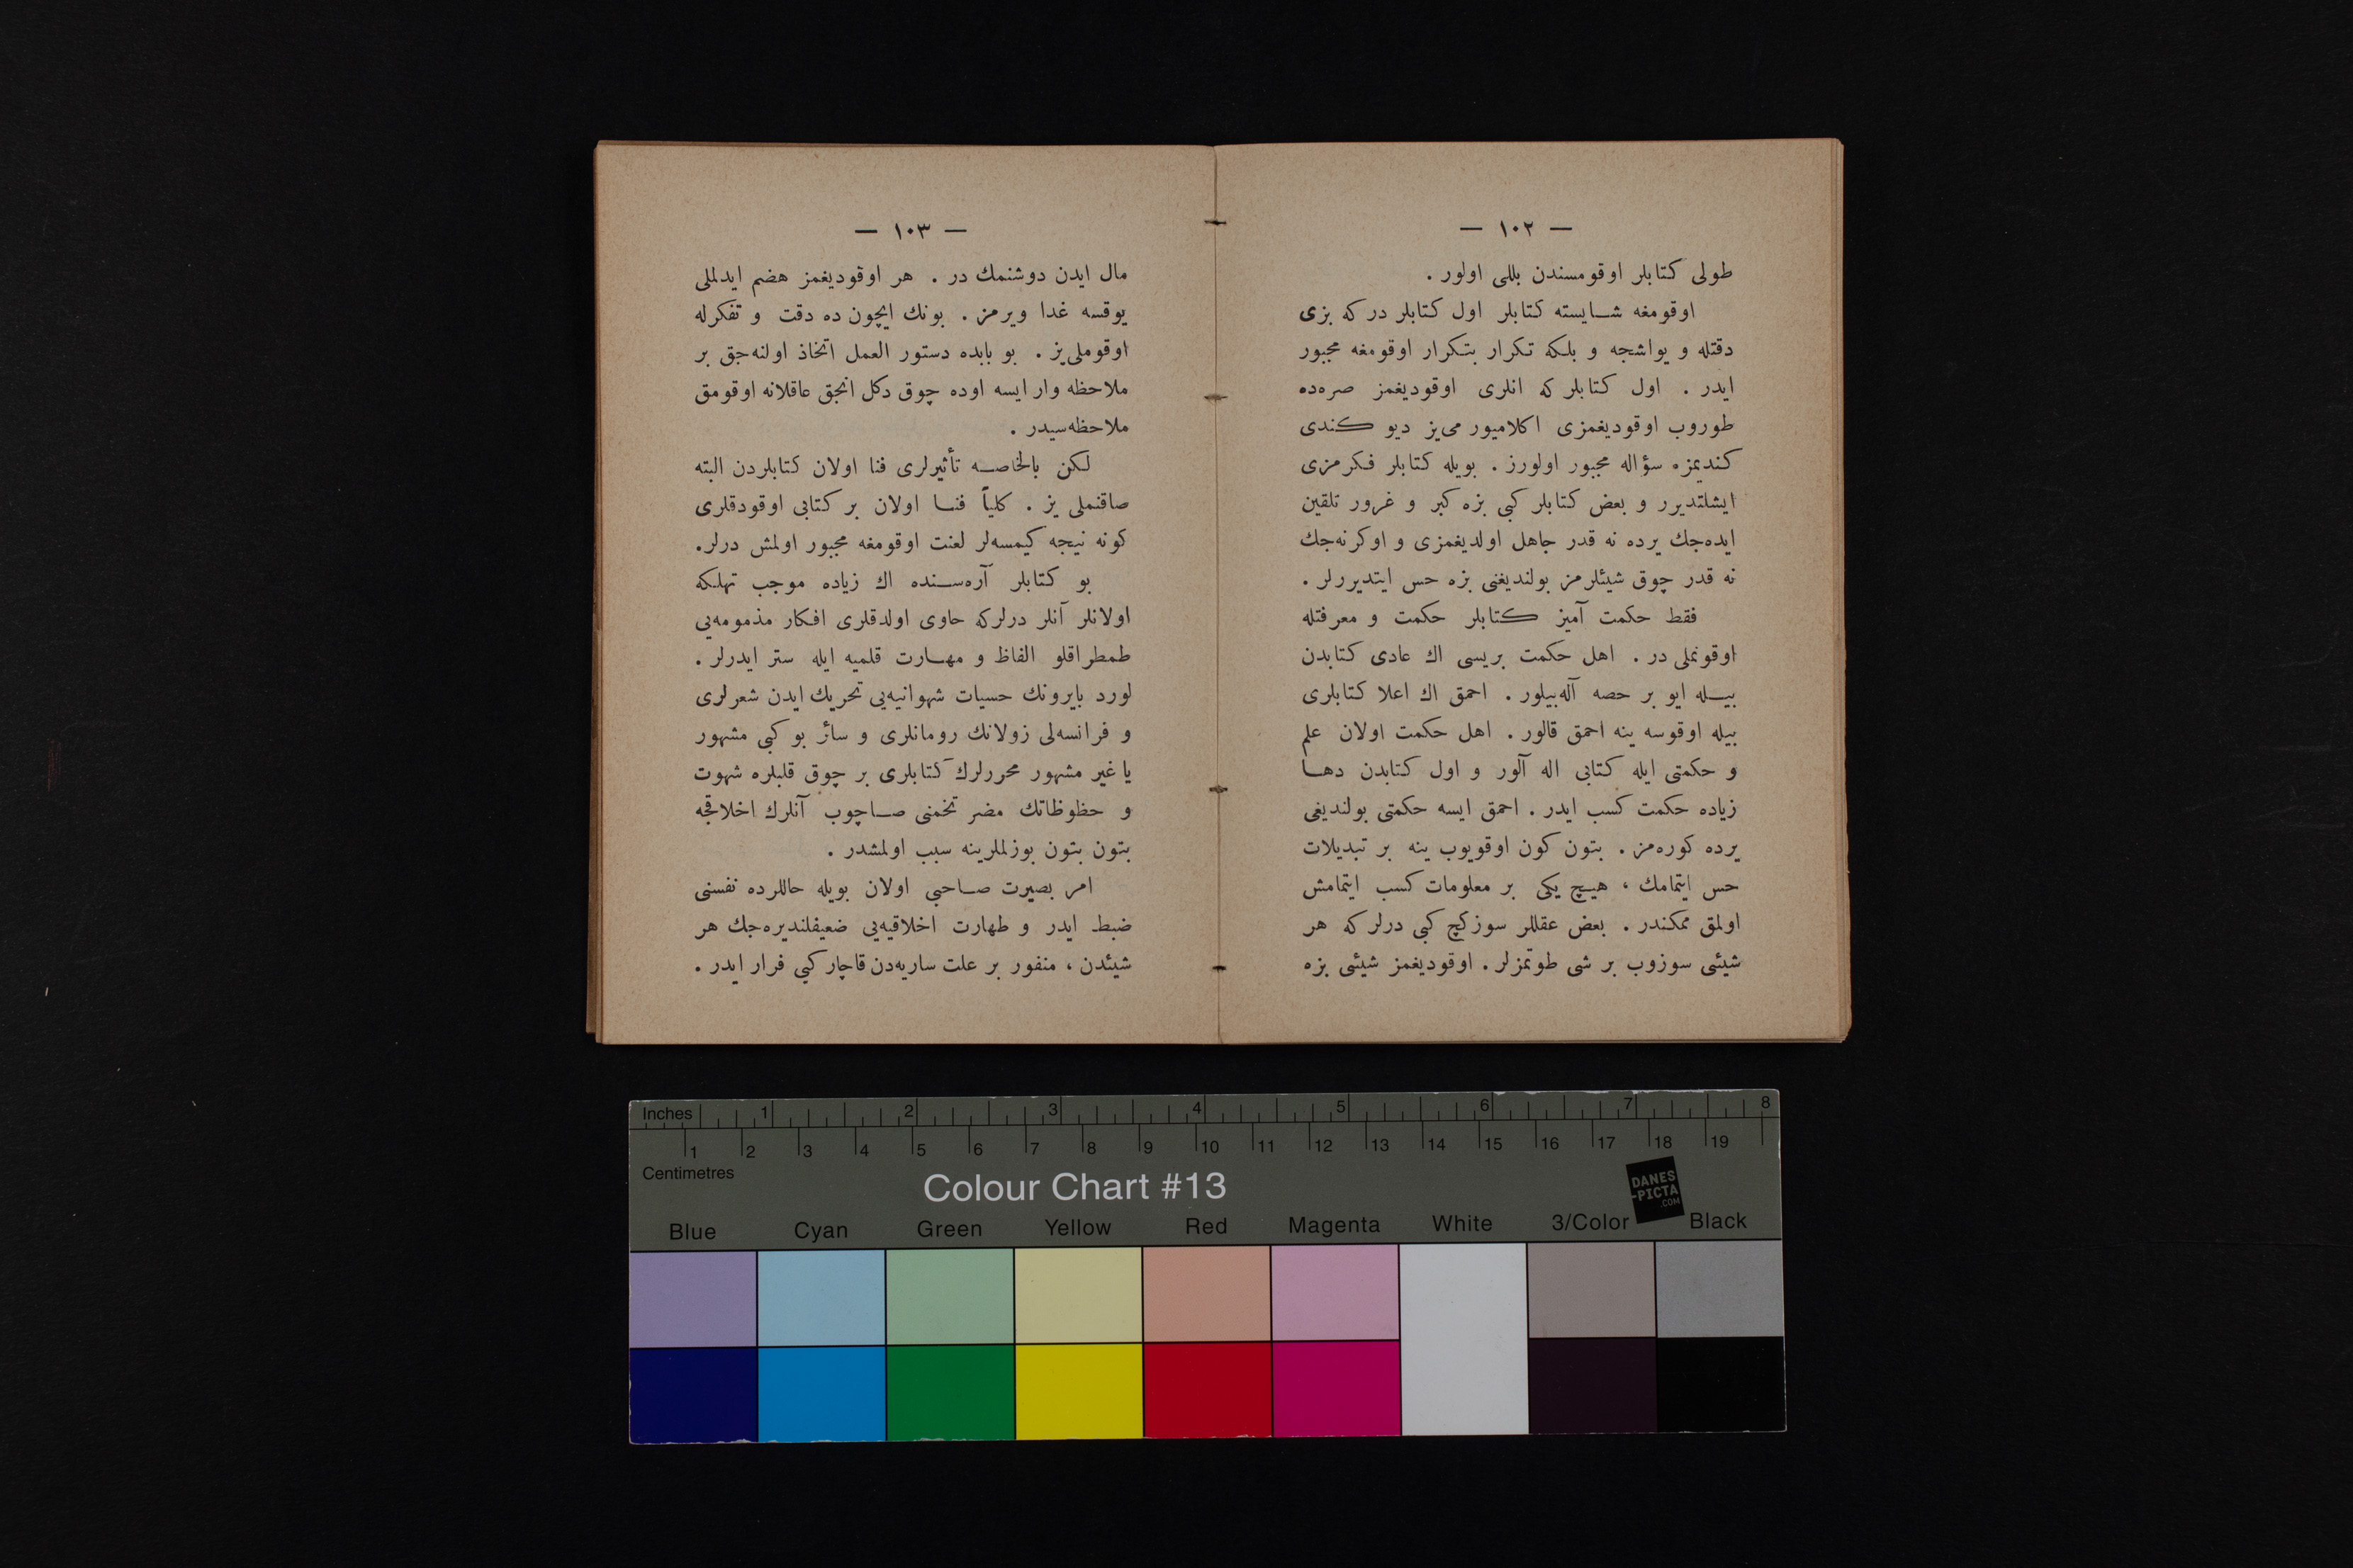 — ١٠٢ —
طولى كتابلر اوقومسندن بللى اولور .
اوقومغه شــايسته كتابلر اول كتابلر دركه بزى
دقتله و يواشجه و بلكه تكرار بتكرار اوقومغه مجبور
ايدر . اول كتابلر كه انلرى اوقوديغمز صره‌ده
طوروب اوقوديغمزى اكلاميور مى‌يز ديو كندى
كنديمزه سؤاله مجبور اولورز . بويله كتابلر فكرمزى
ايشلتديرر و بعض كتابلر كبى بزه كبر و غرور تلقين
ايده‌جك يرده نه قدر جاهل اولديغمزى و اوكرنه‌جك
نه قدر چوق شيئلرمز بولنديغنى بزه حس ايتديررلر .
فقط حكمت آميز كتابلر حكمت و معرفتله
اوقونملى در . اهل حكمت بريسى اك عادى كتابدن
بيــله ايو بر حصه آله‌بيلور . احمق اك اعلا كتابلرى
بيله اوقوسه ينه احمق قالور . اهل حكمت اولان علم
و حكمتى ايله كتابى اله آلور و اول كتابدن دهــا
زياده حكمت كسب ايدر . احمق ايسه حكمتى بولنديغى
يرده كوره‌مز . بتون كون اوقويوب ينه بر تبديلات
حس ايتمامك ، هيچ يكى بر معلومات كسب ايتمامش
اولمق ممكندر . بعض عقللر سوزكچ كبى درلر كه هر
شيئى سوزوب بر شى طوتمزلر . اوقوديغمز شيئى بزه
— ١٠٣ —
مال ايدن دوشنمك در . هر اوقوديغمز هضم ايدلملى
يوقسه غدا ويرمز . بونك ايچون ده دقت و تفكرله
اوقوملى‌يز . بو بابده دستور العمل اتخاذ اولنه‌جق بر
ملاحظه وار ايسه اوده چوق دكل انجق عاقلانه اوقومق
ملاحظه‌سيدر .
لكن بالخاصــه تأثيرلرى فنا اولان كتابلردن البته
صاقنملى يز . كلياً فنــا اولان بر كتابى اوقودقلرى
كونه نيجه كيمسه‌لر لعنت اوقومغه مجبور اولمش درلر.
بو كتابلر آره‌ســنده اك زياده موجب تهلكه
اولانلر آنلر درلركه حاوى اولدقلرى افكار مذمومه‌يى
طمطراقلو الفاظ و مهــارت قلميه ايله ستر ايدرلر .
لورد بايرونك حسيات شهوانيه‌يى تحريك ايدن شعرلرى
و فرانسه‌لى زولانك رومانلرى و سائر بو كبى مشهور
يا غير مشهور محررلرك كتابلرى بر چوق قلبلره شهوت
و حظوظاتك مضر تخمنى صــاچوب آنلرك اخلاقجه
بتون بتون بوزلملرينه سبب اولمشدر .
امر بصيرت صــاحبى اولان بويله حاللرده نفسنى
ضبط ايدر و طهارت اخلاقيه‌يى ضعيفلنديره‌جك هر
شيئدن ، منفور بر علت ساريه‌دن قاچار كبى فرار ايدر .
Inches 1 2 3 4 5 6 7 8
1 2 3 4 5 6 7 8 9 10 11 12 13 14 15 16 17 18 19
Centimetres
Colour Chart #13
DANES
-PICTA
.COM
Blue Cyan Green Yellow Red Magenta White 3/Color Black